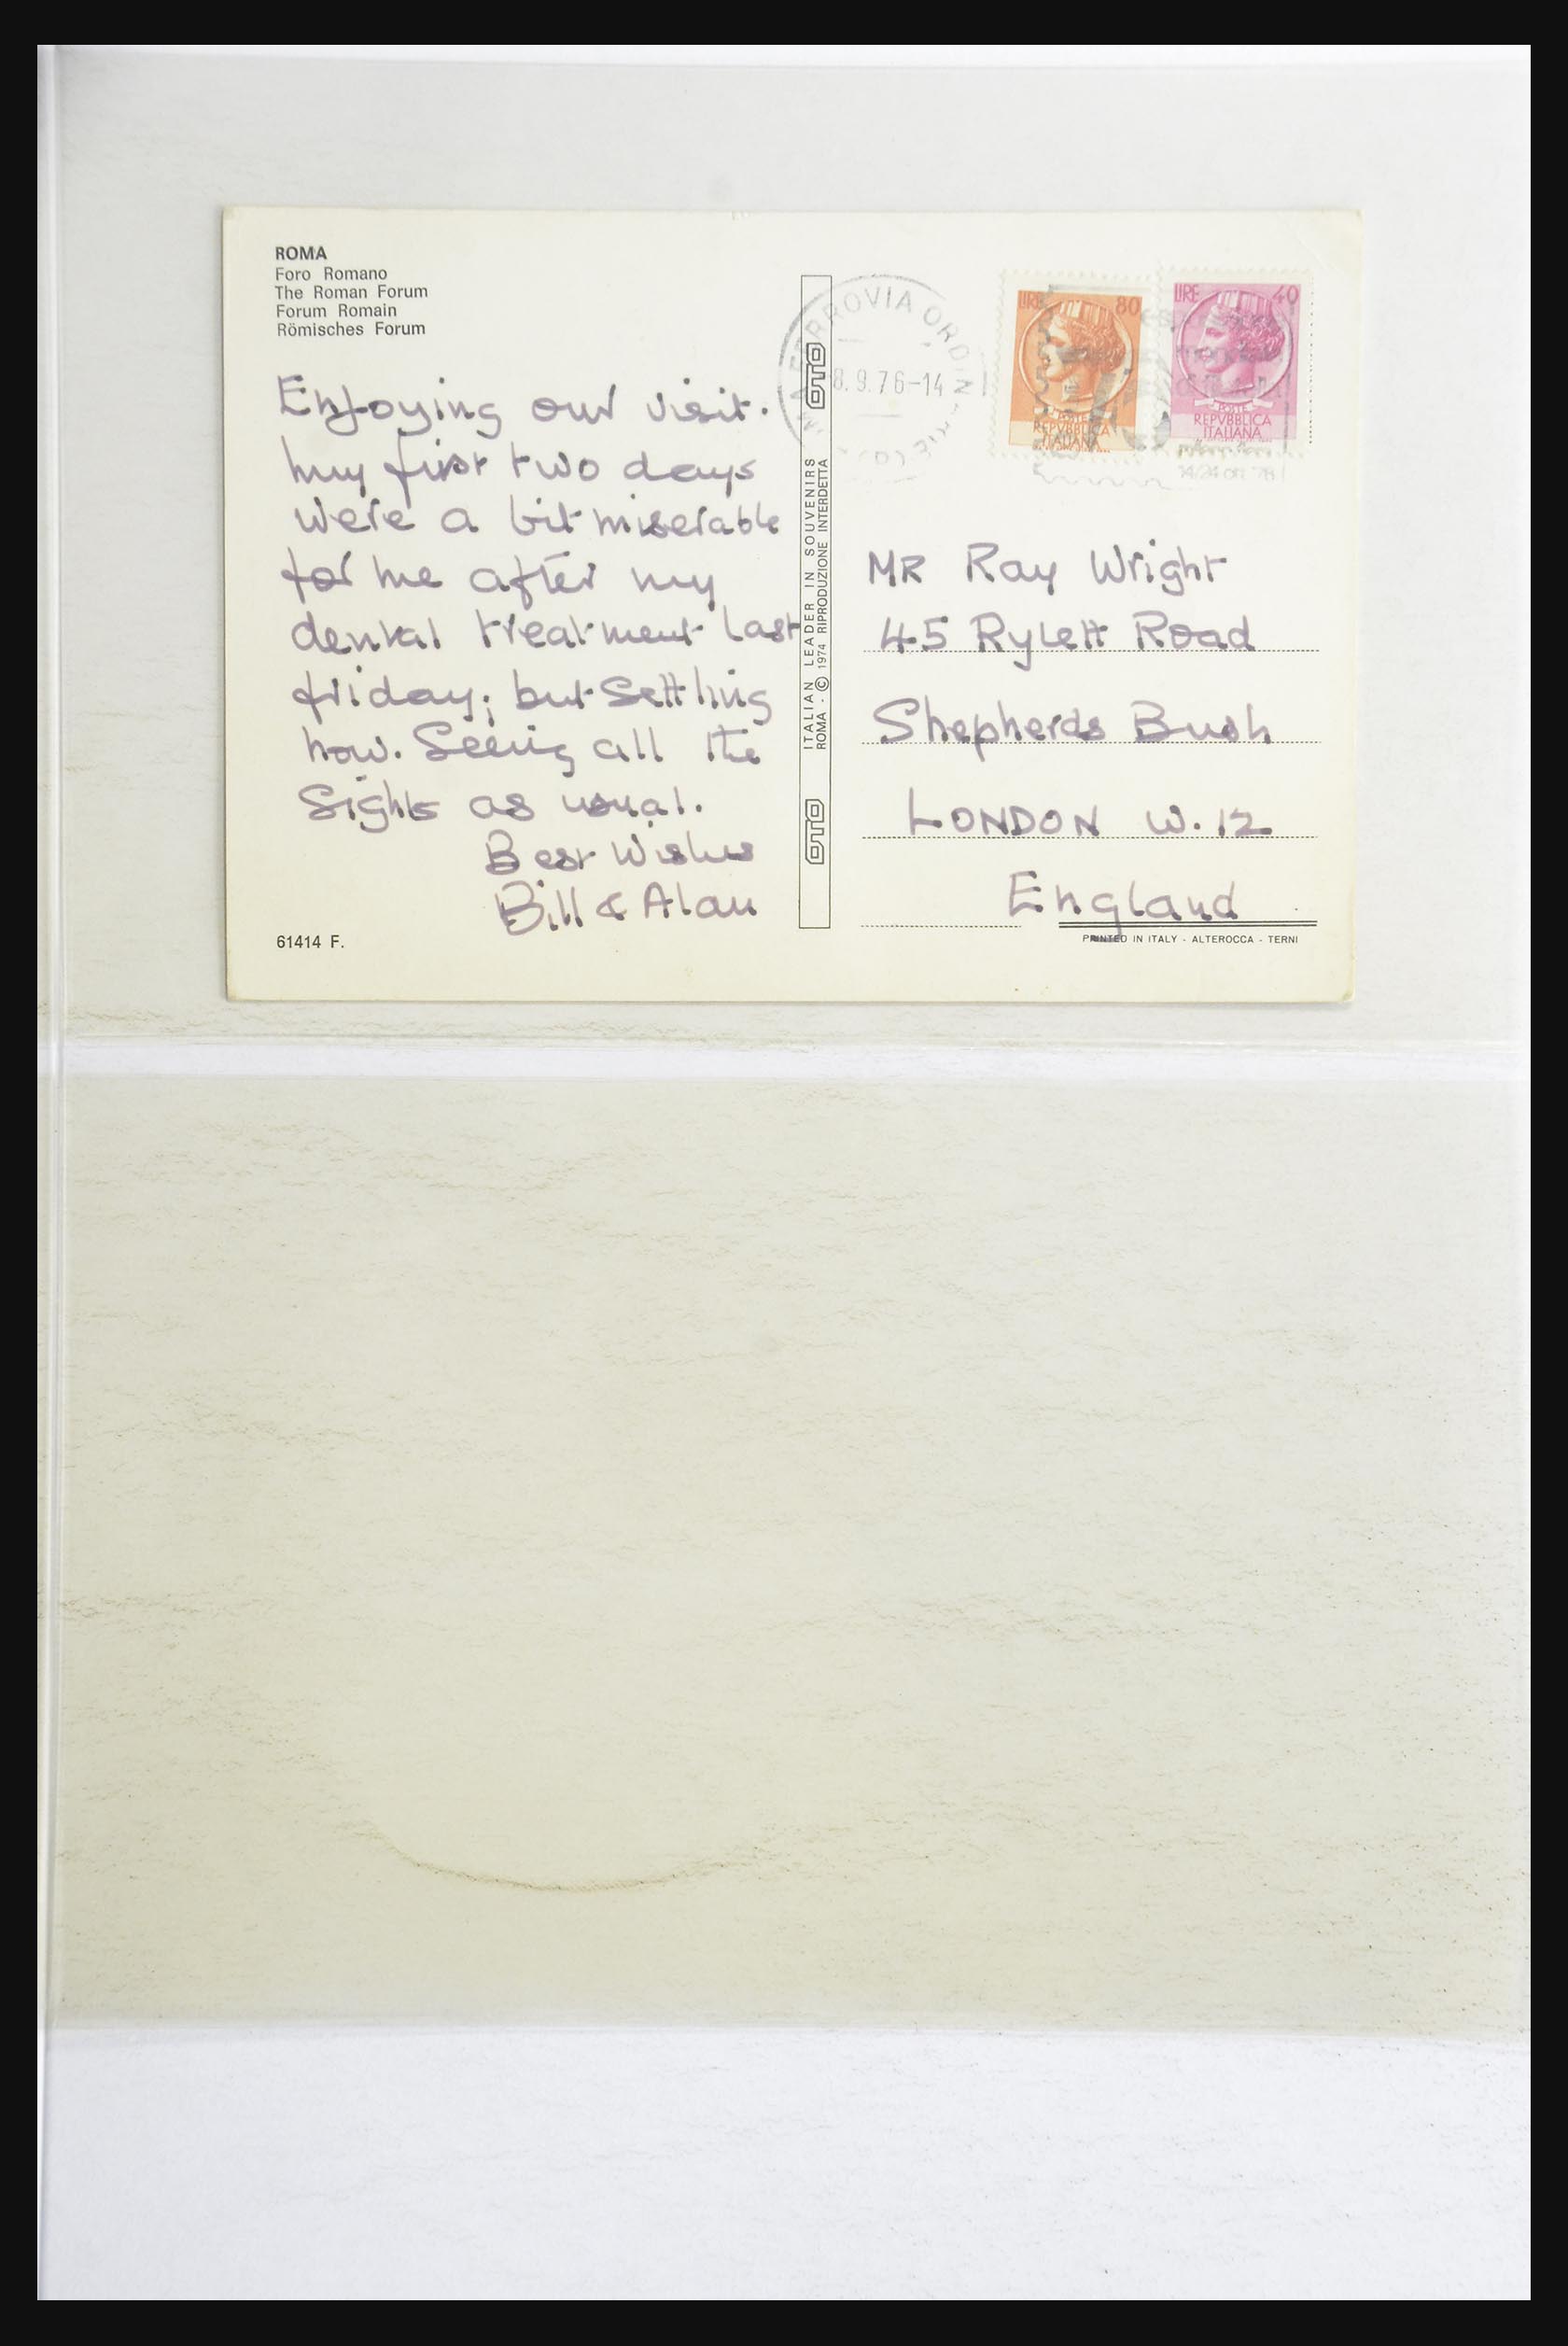 ROMA
Foro Romano
The Roman Forum
Forum Romain
Römisches Forum
Enjoying our visit.
my first two days
were a bit miserable
for me after my
dental treatment last
friday; but settling
now. Seeing all the
Sights as usual.
Best Wishes
Bill & Alan
61414 F.
OTO
ITALIAN LEADER IN SOUVENIRS
ROMA - © 1974 RIPRODUZIONE INTERDETTA
OTO
FERROVIA ORDIN
8.9.76-14
LIRE 80
POSTE
REPVBBLICA
ITALIANA
LIRE 40
POSTE
REPVBBLICA
ITALIANA
MR Ray Wright
45 Rylett Road
Shepherds Bush
LONDON W.12
England
PRINTED IN ITALY - ALTEROCCA - TERNI